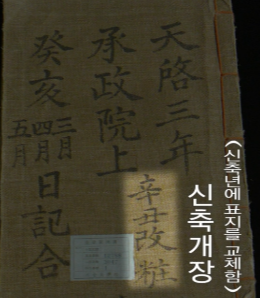 天啓三年
承政院上
癸亥 三月 四月 五月 日記合
辛丑改粧
(신축년에 표지를 교체함)
신축개장